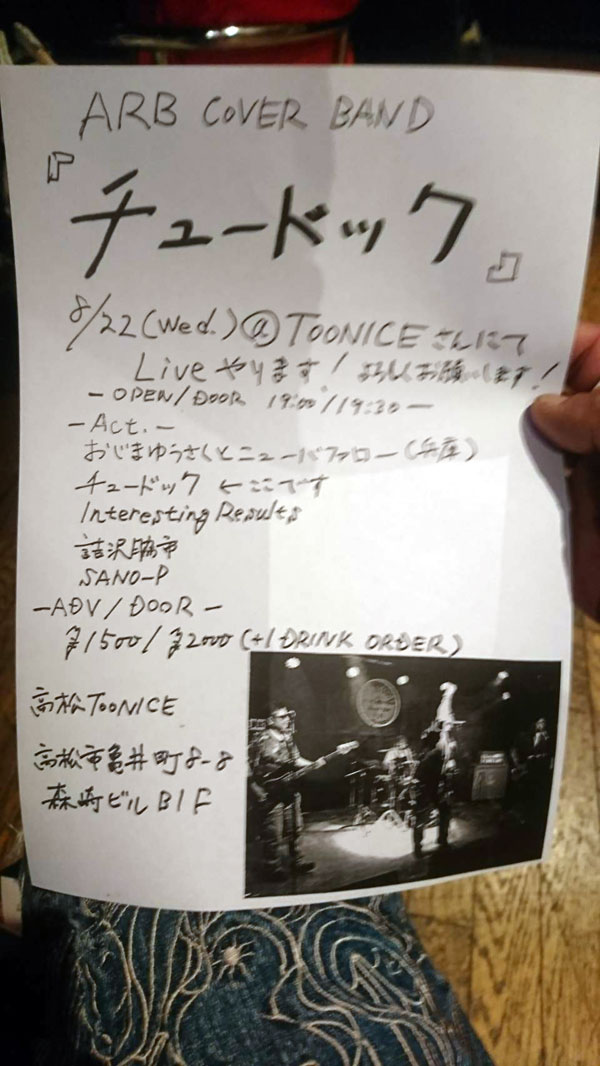 ARB COVER BAND
『チュードック』
8/22(Wed.)@TOONICEさんにて
Liveやります!よろしくお願いします!
-OPEN/DOOR 19:00/19:30-
-Act.-
おじまゆうさくとニューバファロー(兵庫)
チュードック ←ここです
Interesting Results
詰沢脇市
SANO-P
-ADV/DOOR-
¥1500/¥2000(+1DRINK ORDER)
高松TOONICE
高松市亀井町8-8
森崎ビルB1F